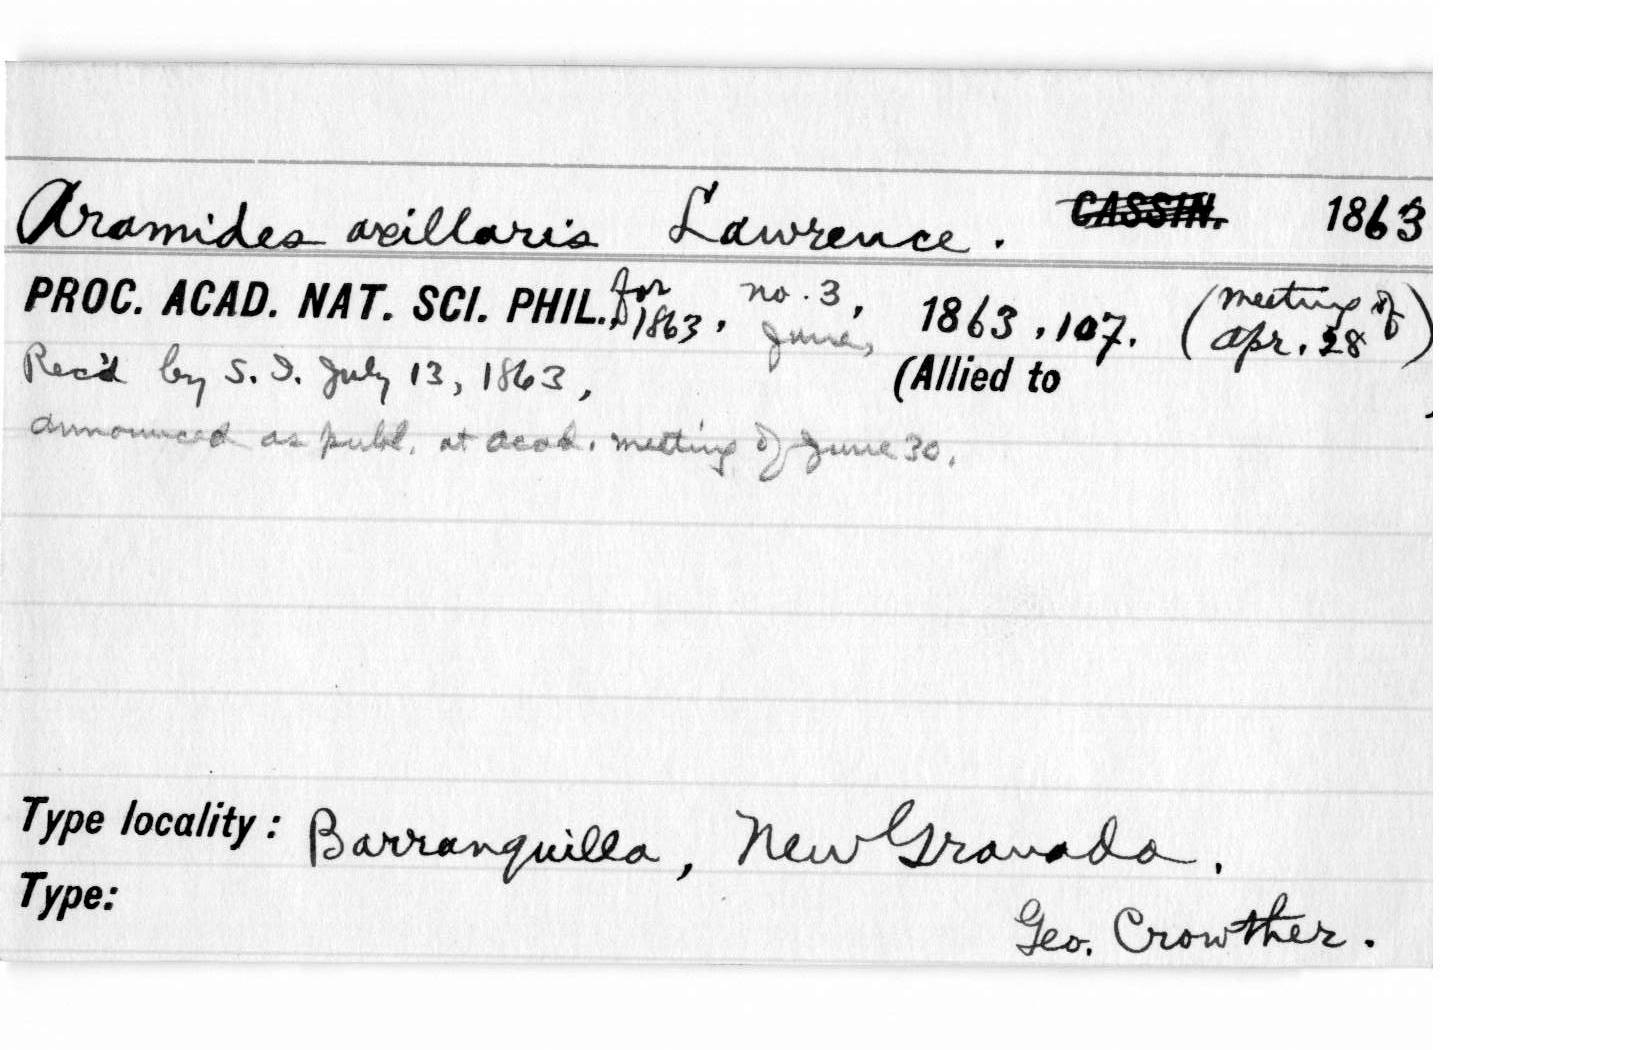 Aramides axillaris Lawrence. CASSIN. 1863
PROC. ACAD. NAT. SCI. PHIL., for 1863, no. 3, June, 1863, 107. (meeting of Apr. 28)
Rec'd by S. I. July 13, 1863, (Allied to
announced as publ. at acad. meeting of June 30.
Type locality: Barranquilla, New Granada.
Type:
Geo. Crowther.